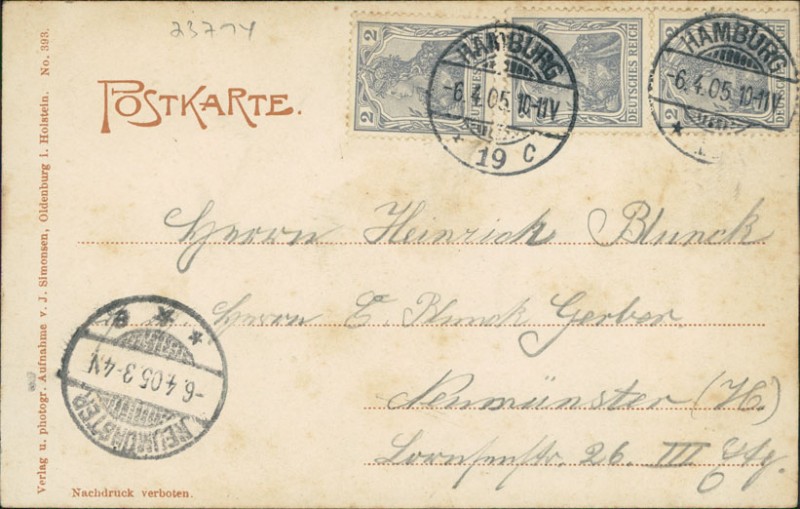 23794
POSTKARTE.
2
2
DEUTSCHES REICH
HAMBURG
-6.4.05.10-11V
* 19 C
HAMBURG
-6.4.05.10-11V
*
Herrn Heinrich Blunck
Herrn E. Blunck Gerber
Neumünster (H.)
Lornsenstr. 26. III Etg.
NEUMÜNSTER
-6.4.05.3-4N.
* * a
Verlag u. photogr. Aufnahme v. J. Simonsen, Oldenburg i. Holstein. No. 393.
Nachdruck verboten.